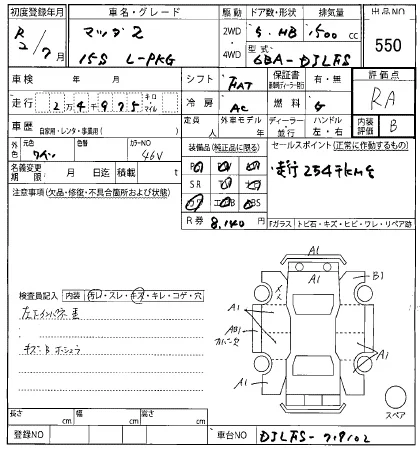 初度登録年月 車名・グレード 駆動 ドア数・形状 排気量 出品NO
R2/7月 マツダ2 2WD 5.HB 1500cc 550
15S L-PKG 4WD 型式 6BA-DJLFS
車検 年 月 シフト FAT 保証書 有・無 評価点
走行 2万4千975 キロ マイル 冷房 AC 燃料 G RA
車歴 自家用・レンタ・事業用( ) 定員 人 外車モデル 年 ディーラー 並行 ハンドル 左・右 内装評価 B
外色 元色 色替 カラーNO 46V 装備品(純正品に限る) セールスポイント(正常に作動するもの)
名義変更期限 月 日迄 積載 t SR 走行254千kmを
注意事項(欠品・修復・不具合箇所および状態)
R券 8,140円 Fガラス トビ石・キズ・ヒビ・ワレ・リペア跡
A1
A1 B1
検査員記入 内装 汚レ・スレ・キズ・キレ・コゲ・穴 A1
A1
A1
A1
スペア
長さ cm 幅 cm 高さ cm
登録NO 車台NO DJLFS-719102